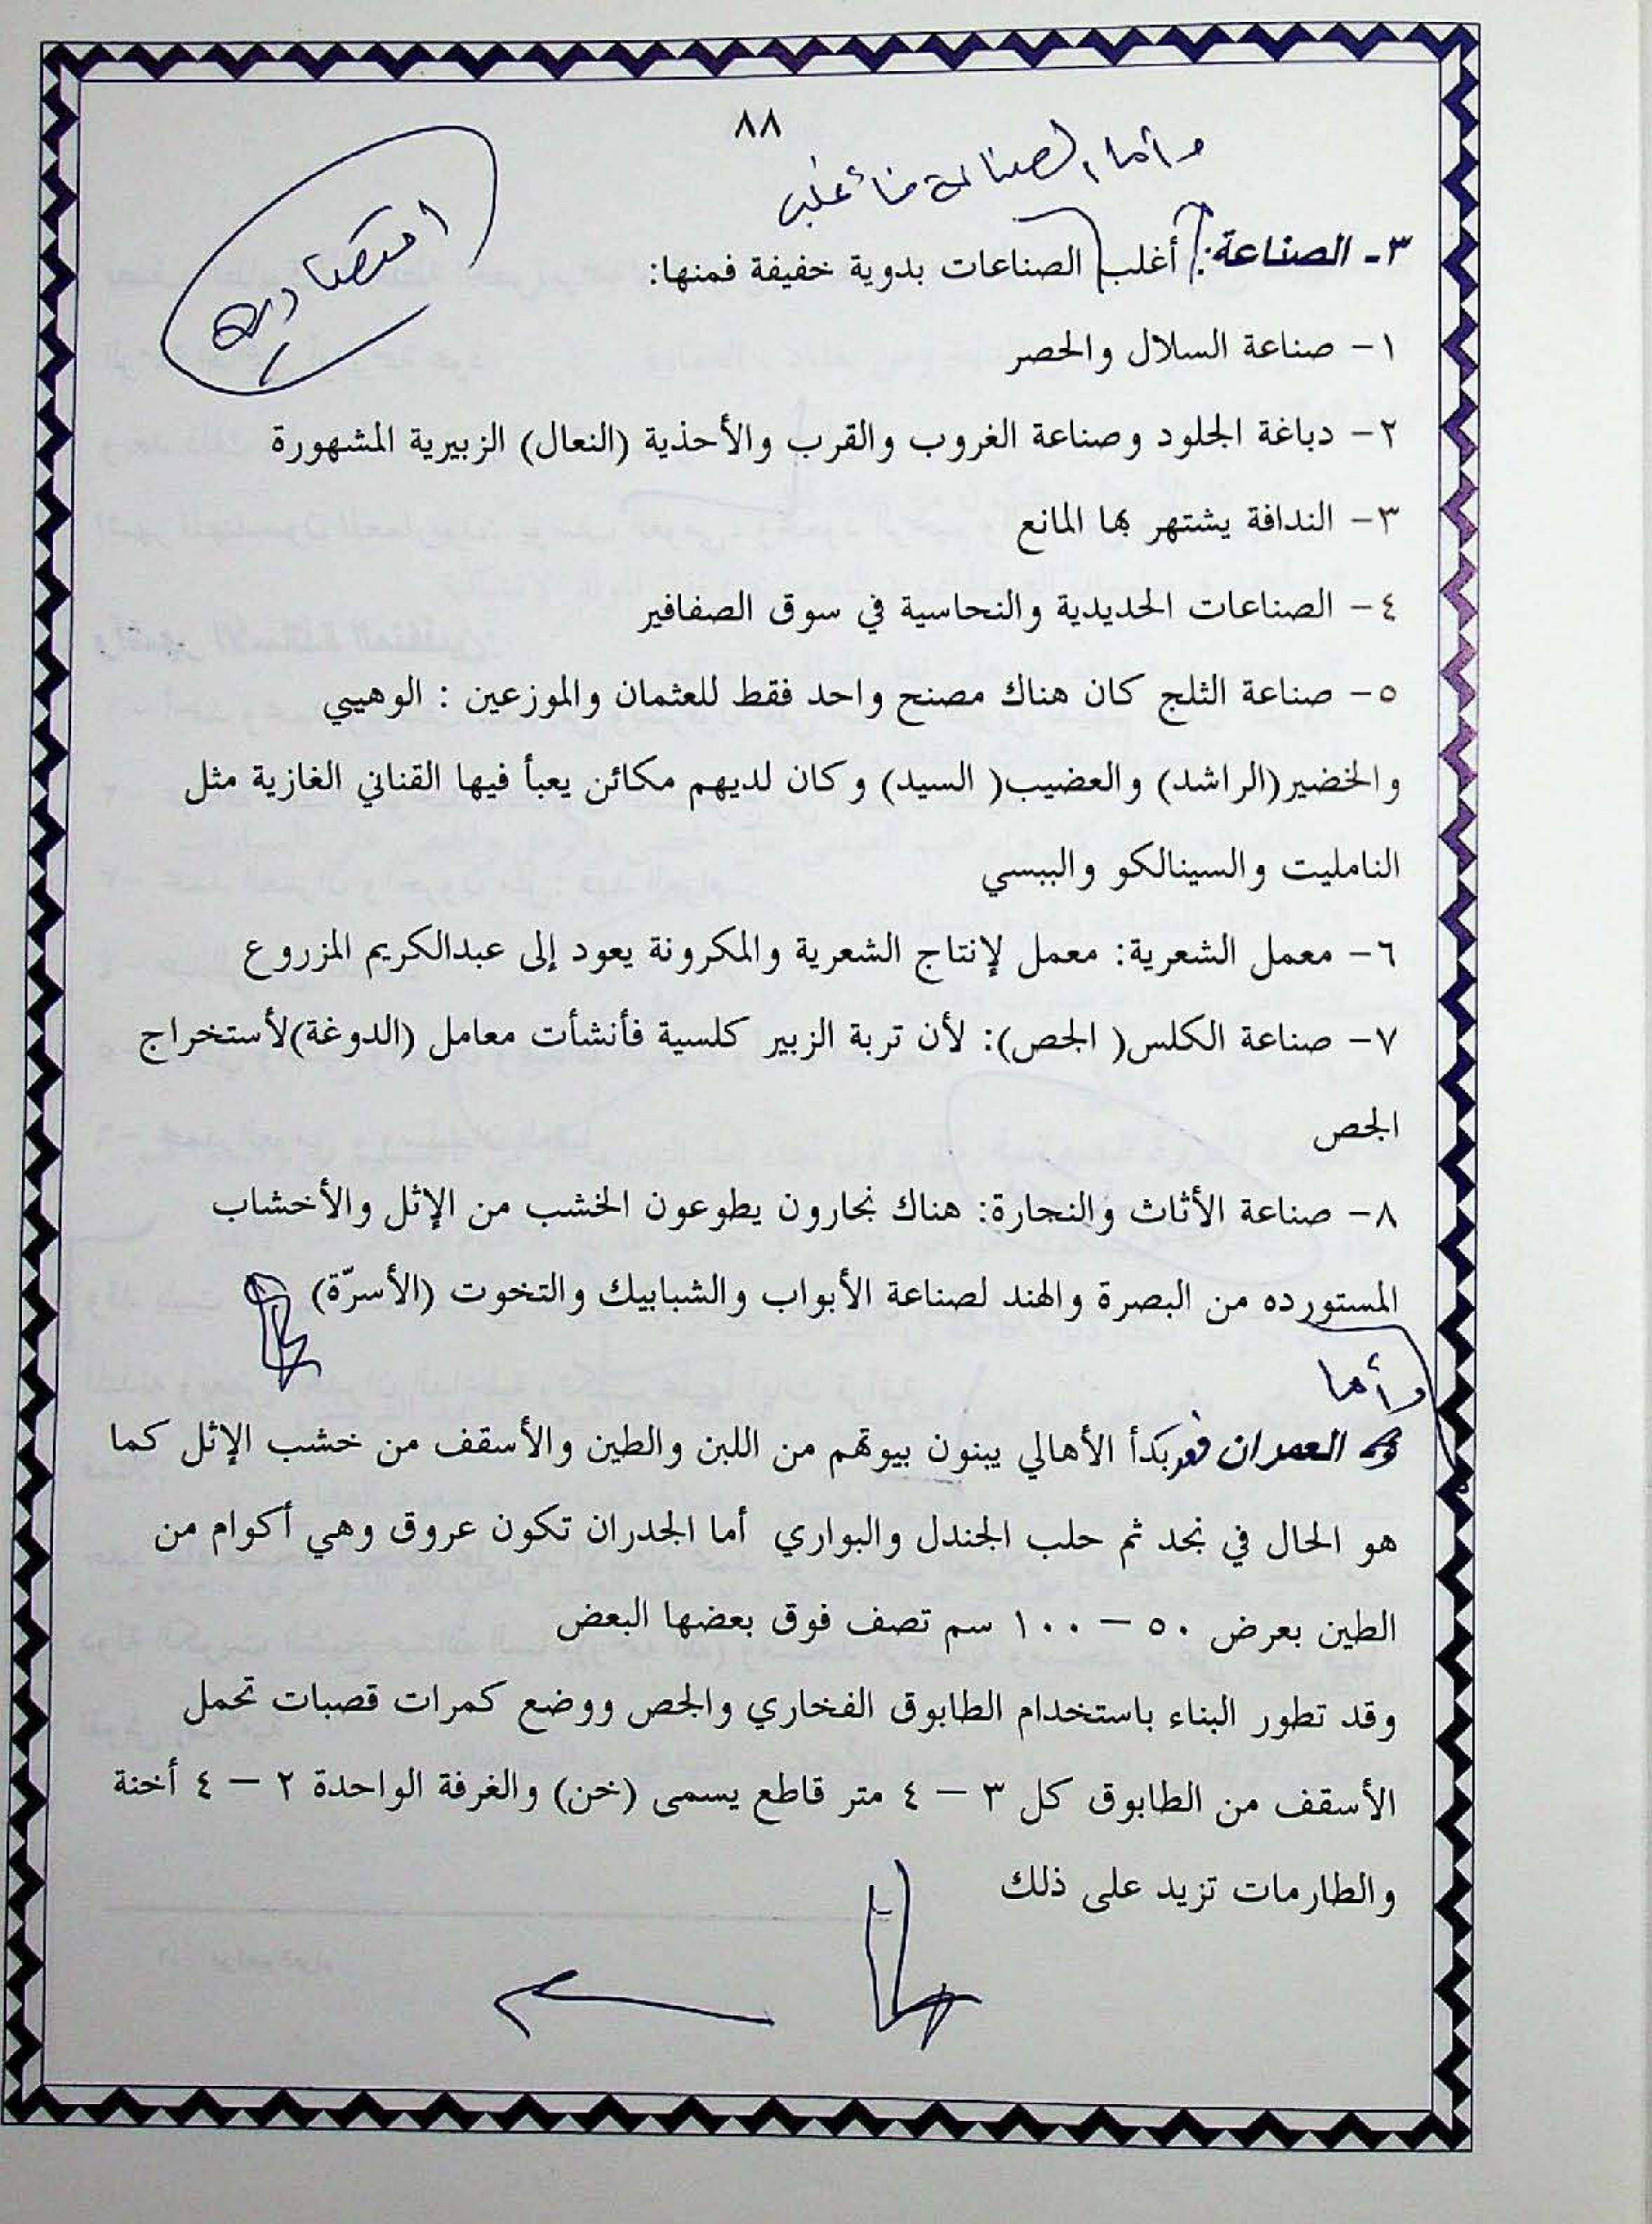 ٨٨
وأما الصناعة فأغلب
اقتصادية
٣- الصناعة: أغلب الصناعات بدوية خفيفة فمنها:
١- صناعة السلال والحصر
٢- دباغة الجلود وصناعة الغروب والقرب والأحذية (النعال) الزبيرية المشهورة
٣- الندافة يشتهر بها المانع
٤- الصناعات الحديدية والنحاسية في سوق الصفافير
٥- صناعة الثلج كان هناك مصنح واحد فقط للعثمان والموزعين : الوهيبي
والخضير(الراشد) والعضيب( السيد) وكان لديهم مكائن يعبأ فيها القناني الغازية مثل
النامليت والسينالكو والببسي
٦- معمل الشعرية: معمل لإنتاج الشعرية والمكرونة يعود إلى عبدالكريم المزروع
٧- صناعة الكلس( الجص): لأن تربة الزبير كلسية فأنشأت معامل (الدوغة)لأستخراج
الجص
٨- صناعة الأثاث والنجارة: هناك نجارون يطوعون الخشب من الإثل والأخشاب
المستورده من البصرة والهند لصناعة الأبواب والشبابيك والتخوت (الأسرّة)
وأما
العمران بدأ الأهالي يبنون بيوتهم من اللبن والطين والأسقف من خشب الإثل كما
هو الحال في نجد ثم حلب الجندل والبواري أما الجدران تكون عروق وهي أكوام من
الطين بعرض ٥٠ – ١٠٠ سم تصف فوق بعضها البعض
وقد تطور البناء باستخدام الطابوق الفخاري والجص ووضع كمرات قصبات تحمل
الأسقف من الطابوق كل ٣ – ٤ متر قاطع يسمى (خن) والغرفة الواحدة ٢ – ٤ أخنة
والطارمات تزيد على ذلك